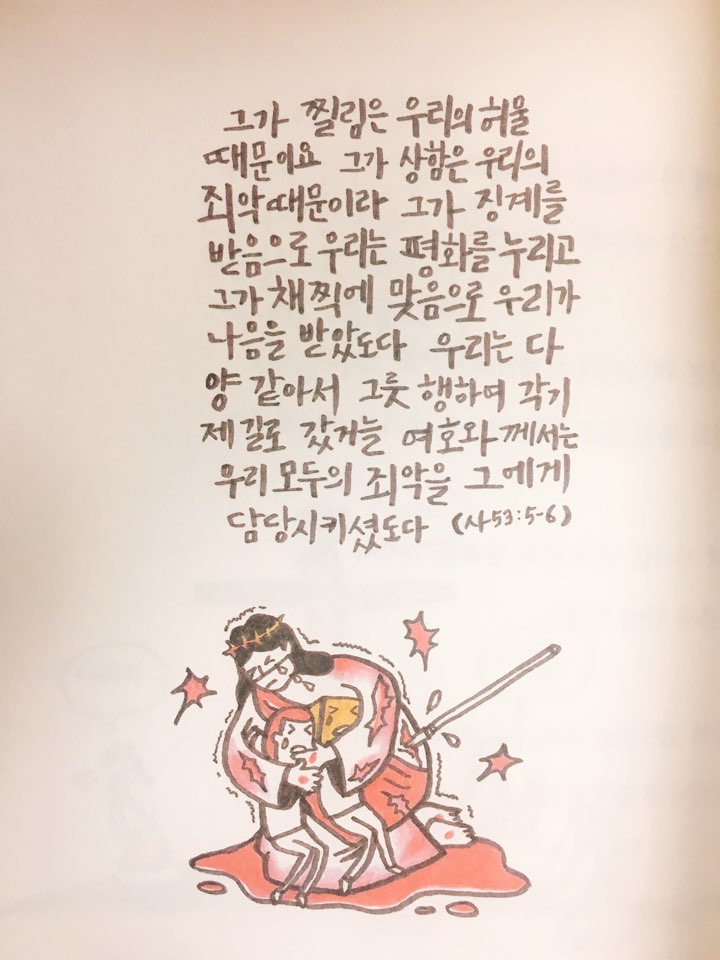 그가 찔림은 우리의 허물
때문이요 그가 상함은 우리의
죄악때문이라 그가 징계를
받음으로 우리는 평화를 누리고
그가 채찍에 맞음으로 우리가
나음을 받았도다 우리는 다
양 같아서 그릇 행하며 각기
제 길로 갔거늘 여호와께서는
우리 모두의 죄악을 그에게
담당시키셨도다 (사53:5-6)